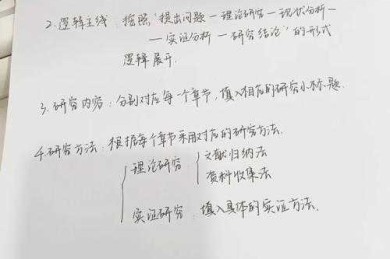 2.逻辑主线 按照"提出问题－理论研究－现状分析－
－实证分析－研究结论"的形式
逻辑展开.
3.研究内容:分别对应每个章节,填入相应的研究小标题.
4.研究方法:根据每个章节采用对应的研究方法.
理论研究 文献归纳法
资料收集法
实证研究 填入具体的实证方法.